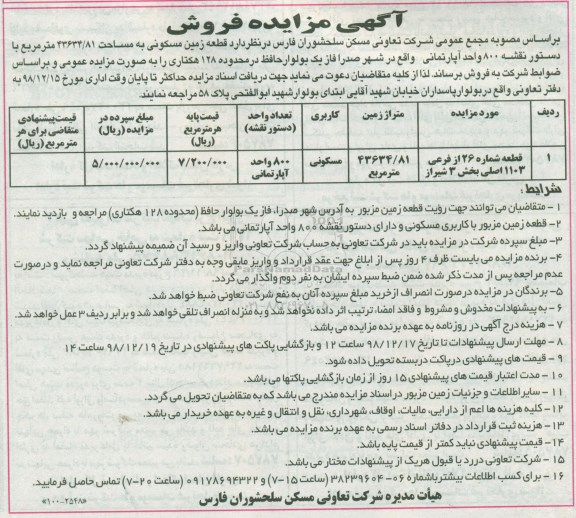 آگهی مزایده فروش
براساس مصوبه مجمع عمومی شرکت تعاونی مسکن سلحشوران فارس درنظردارد قطعه زمین مسکونی به مساحت ۴۳۶۳۴/۸۱ مترمربع با
دستور نقشه ۸۰۰ واحد آپارتمانی واقع در شهر صدرا فاز یک بولوارحافظ درمحدوده ۱۲۸ هکتاری را به صورت مزایده عمومی و براساس
ضوابط شرکت به فروش برساند. لذا از کلیه متقاضیان دعوت می نماید جهت دریافت اسناد مزایده حداکثر تا پایان وقت اداری مورخ ۹۸/۱۲/۱۵ به
دفتر تعاونی واقع دربولوارپاسداران خیابان شهید آقایی ابتدای بولوارشهید ابوالفتحی پلاک ۵۸ مراجعه نمایند.
ردیف مورد مزایده متراژ زمین کاربری تعداد واحد (دستور نقشه) قیمت پایه هرمترمربع (ریال) مبلغ سپرده در مزایده (ریال) قیمت پیشنهادی متقاضی برای هر مترمربع (ریال)
۱ قطعه شماره ۲۶ از فرعی ۱۱۰۳ اصلی بخش ۳ شیراز ۴۳۶۳۴/۸۱ مترمربع مسکونی ۸۰۰ واحد آپارتمانی ۷/۲۰۰/۰۰۰ ۵/۰۰۰/۰۰۰/۰۰۰
شرایط:
۱ - متقاضیان می توانند جهت رویت قطعه زمین مزبور به آدرس شهر صدرا، فاز یک بولوار حافظ (محدوده ۱۲۸ هکتاری) مراجعه و بازدید نمایند.
۲- قطعه زمین مزبور با کاربری مسکونی و دارای دستور نقشه ۸۰۰ واحد آپارتمانی می باشد.
۳- مبلغ سپرده شرکت در مزایده باید در شرکت تعاونی به حساب شرکت تعاونی واریز و رسید آن ضمیمه پیشنهاد گردد.
۴- برنده مزایده می بایست ظرف ۴ روز پس از ابلاغ جهت عقد قرارداد و واریز مابقی وجه به دفتر شرکت تعاونی مراجعه نماید و درصورت
عدم مراجعه پس از مدت ذکر شده ضمن ضبط سپرده ایشان به نفر دوم واگذار می گردد.
۵- برندگان در مزایده درصورت انصراف ازخرید مبلغ سپرده آنان به نفع شرکت تعاونی ضبط خواهد شد.
۶- به پیشنهادات مخدوش و مشروط و فاقد امضا، ترتیب اثر داده نخواهد شد و به منزله انصراف تلقی خواهد شد و برابر ردیف ۳ عمل خواهد شد.
۷- هزینه درج آگهی در روزنامه به عهده برنده مزایده می باشد.
۸- مهلت ارسال پیشنهادات تا تاریخ ۹۸/۱۲/۱۷ ساعت ۱۲ و بازگشایی پاکت های پیشنهادی در تاریخ ۹۸/۱۲/۱۹ ساعت ۱۴
۹- قیمت های پیشنهادی درپاکت دربسته تحویل داده شود.
۱۰- مدت اعتبار قیمت های پیشنهادی ۱۵ روز از زمان بازگشایی پاکتها می باشد.
۱۱- سایر اطلاعات و جزئیات زمین مزبور در اسناد مزایده مندرج می باشد که به متقاضیان تحویل می گردد.
۱۲- کلیه هزینه ها اعم از دارایی، مالیات، اوقاف، شهرداری، نقل و انتقال و غیره به عهده خریدار می باشد.
۱۳- هزینه ثبت قرارداد در دفاتر اسناد رسمی به عهده برنده مزایده می باشد.
۱۴- قیمت پیشنهادی نباید کمتر از قیمت پایه باشد.
۱۵- شرکت تعاونی دررد یا قبول هریک از پیشنهادات مختار می باشد.
۱۶- برای کسب اطلاعات بیشترباشماره ۰۶-۳۸۲۳۹۶۰۴ (ساعت ۱۵-۷) و ۰۹۱۷۸۶۹۴۳۲۲ (ساعت ۲۰-۷) تماس حاصل فرمایید.
هیأت مدیره شرکت تعاونی مسکن سلحشوران فارس
«۱۰۰-۲۵۴۸»